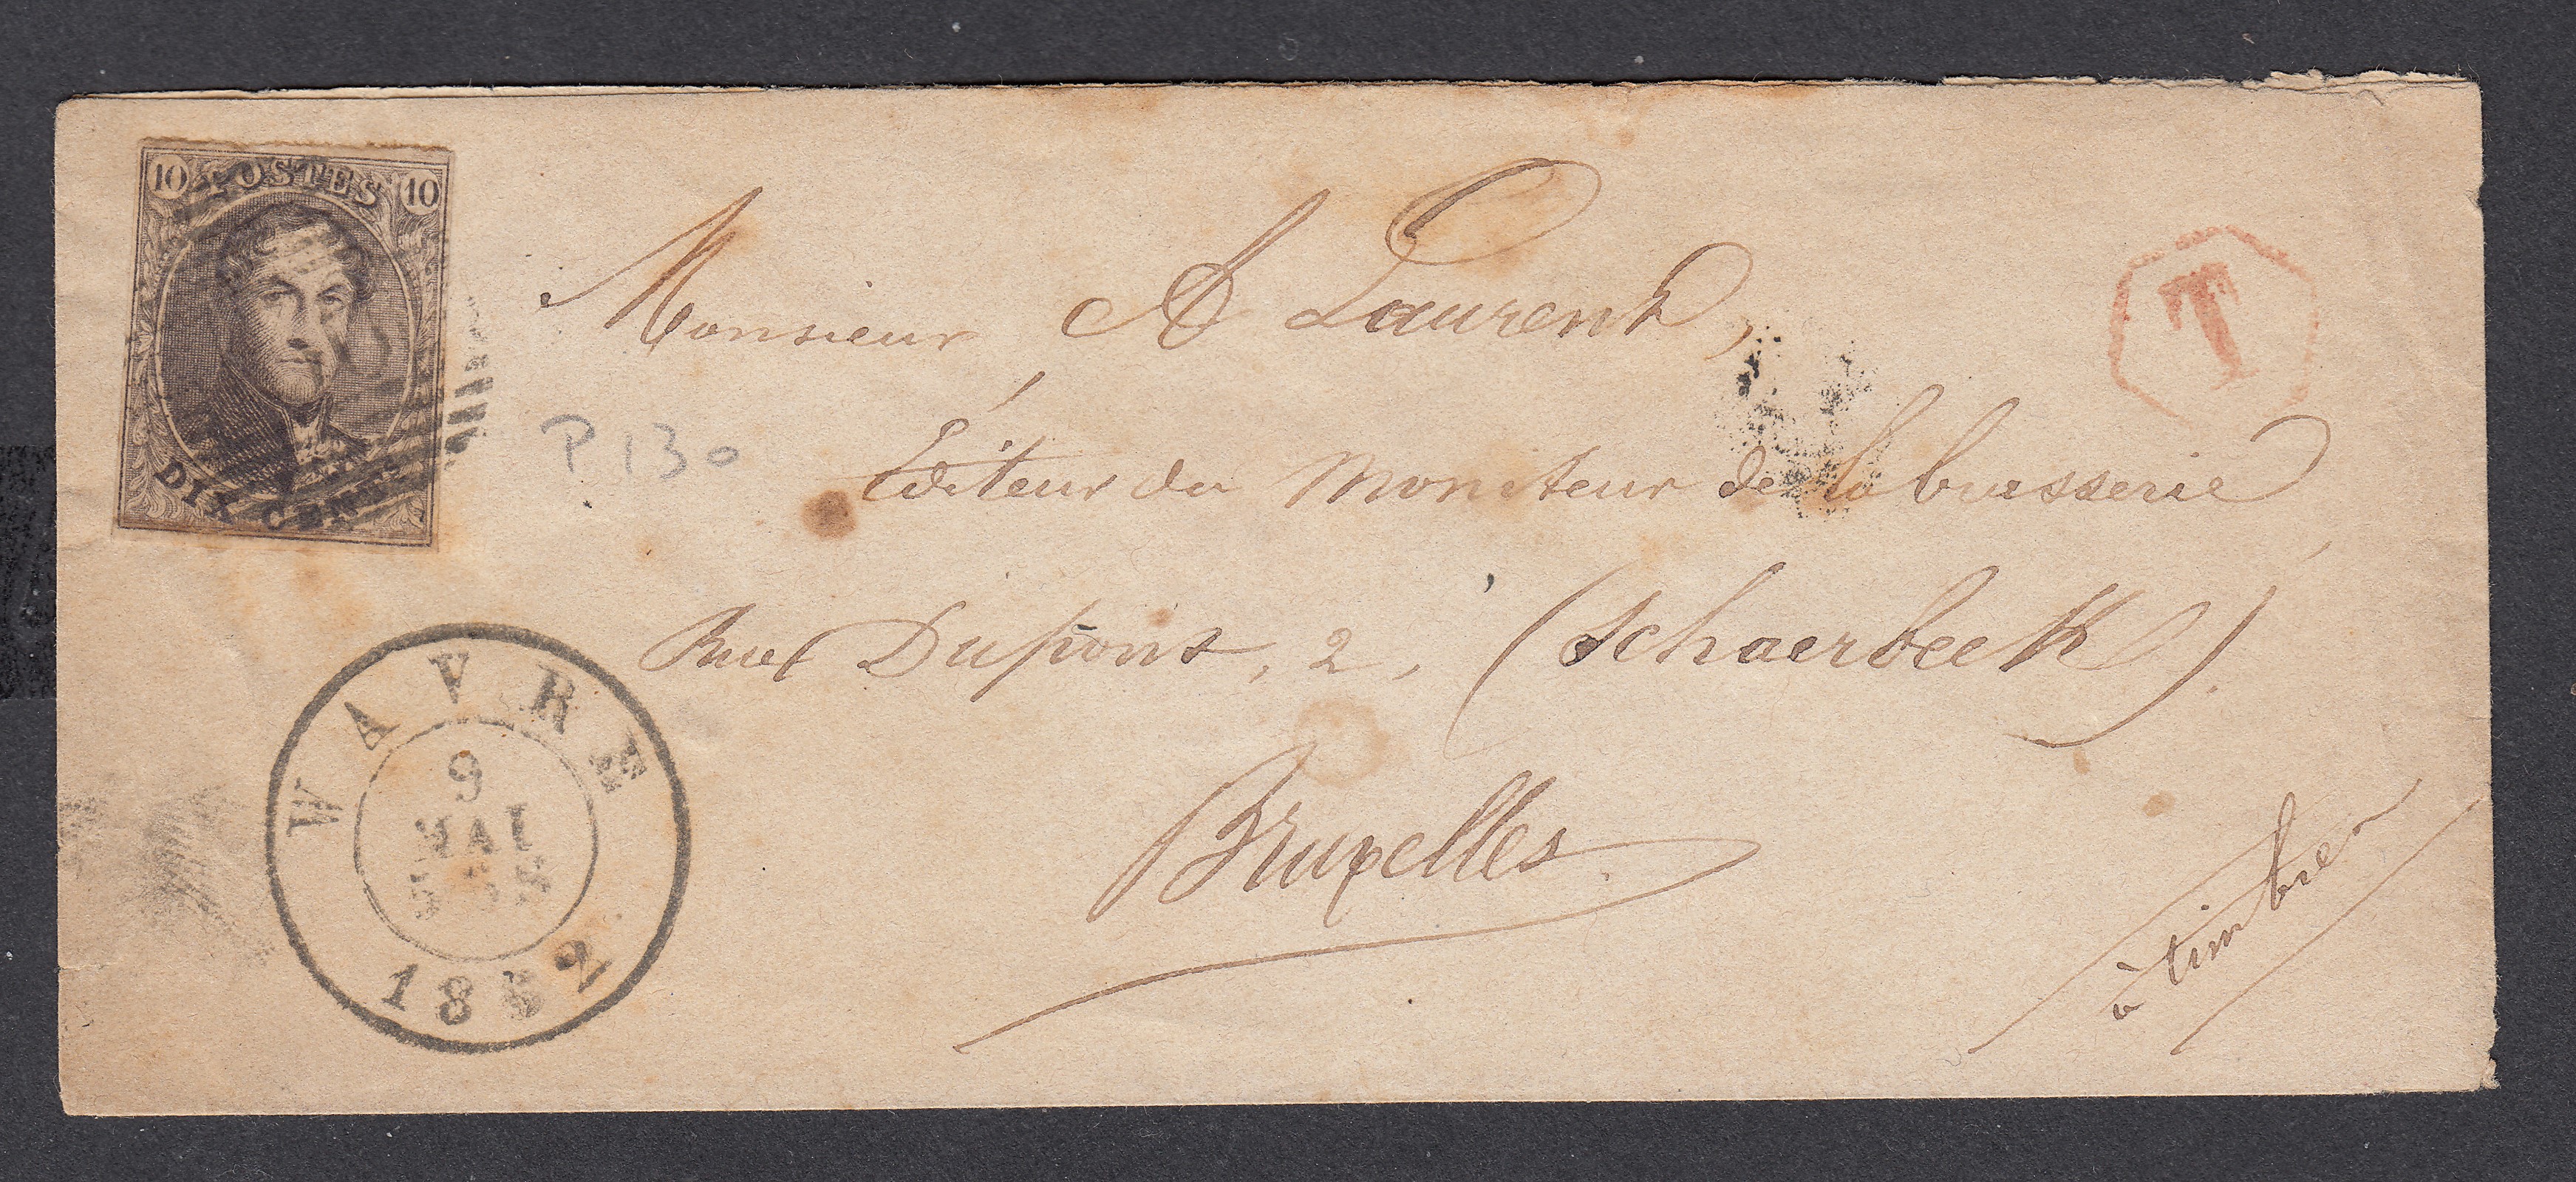 10 POSTES 10
DIX CENTS
P 130
T
Monsieur A Laurent,
Éditeur du Moniteur de la brasserie
Rue Dupont, 2, (Schaerbeek).
Bruxelles.
à timbrer
WAVRE
9
MAI
1862